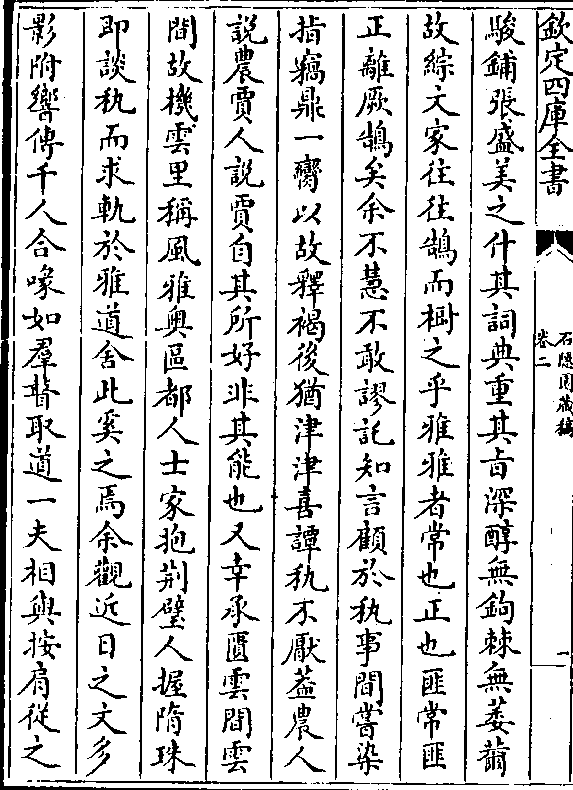 欽定四庫全書
石隱園藏稿
卷二
一
駿鋪張盛美之什其詞典重其㫖深醇無鉤棘無萎薾
故綜文家往往鵠而樹之乎雅雅者常也正也匪常匪
正離厥鵠矣余不慧不敢謬託知言顧於秇事間嘗染
指竊鼎一臠以故釋褐後猶津津喜譚秇不厭蓋農人
說農賈人說賈自其所好非其能也又幸承匱雲間雲
間故機雲里稱風雅奥區都人士家抱荆璧人握隋珠
即談秇而求軌於雅道舍此奚之焉余觀近日之文多
影附響傳千人合喙如羣瞽取道一夫相與按肩從之